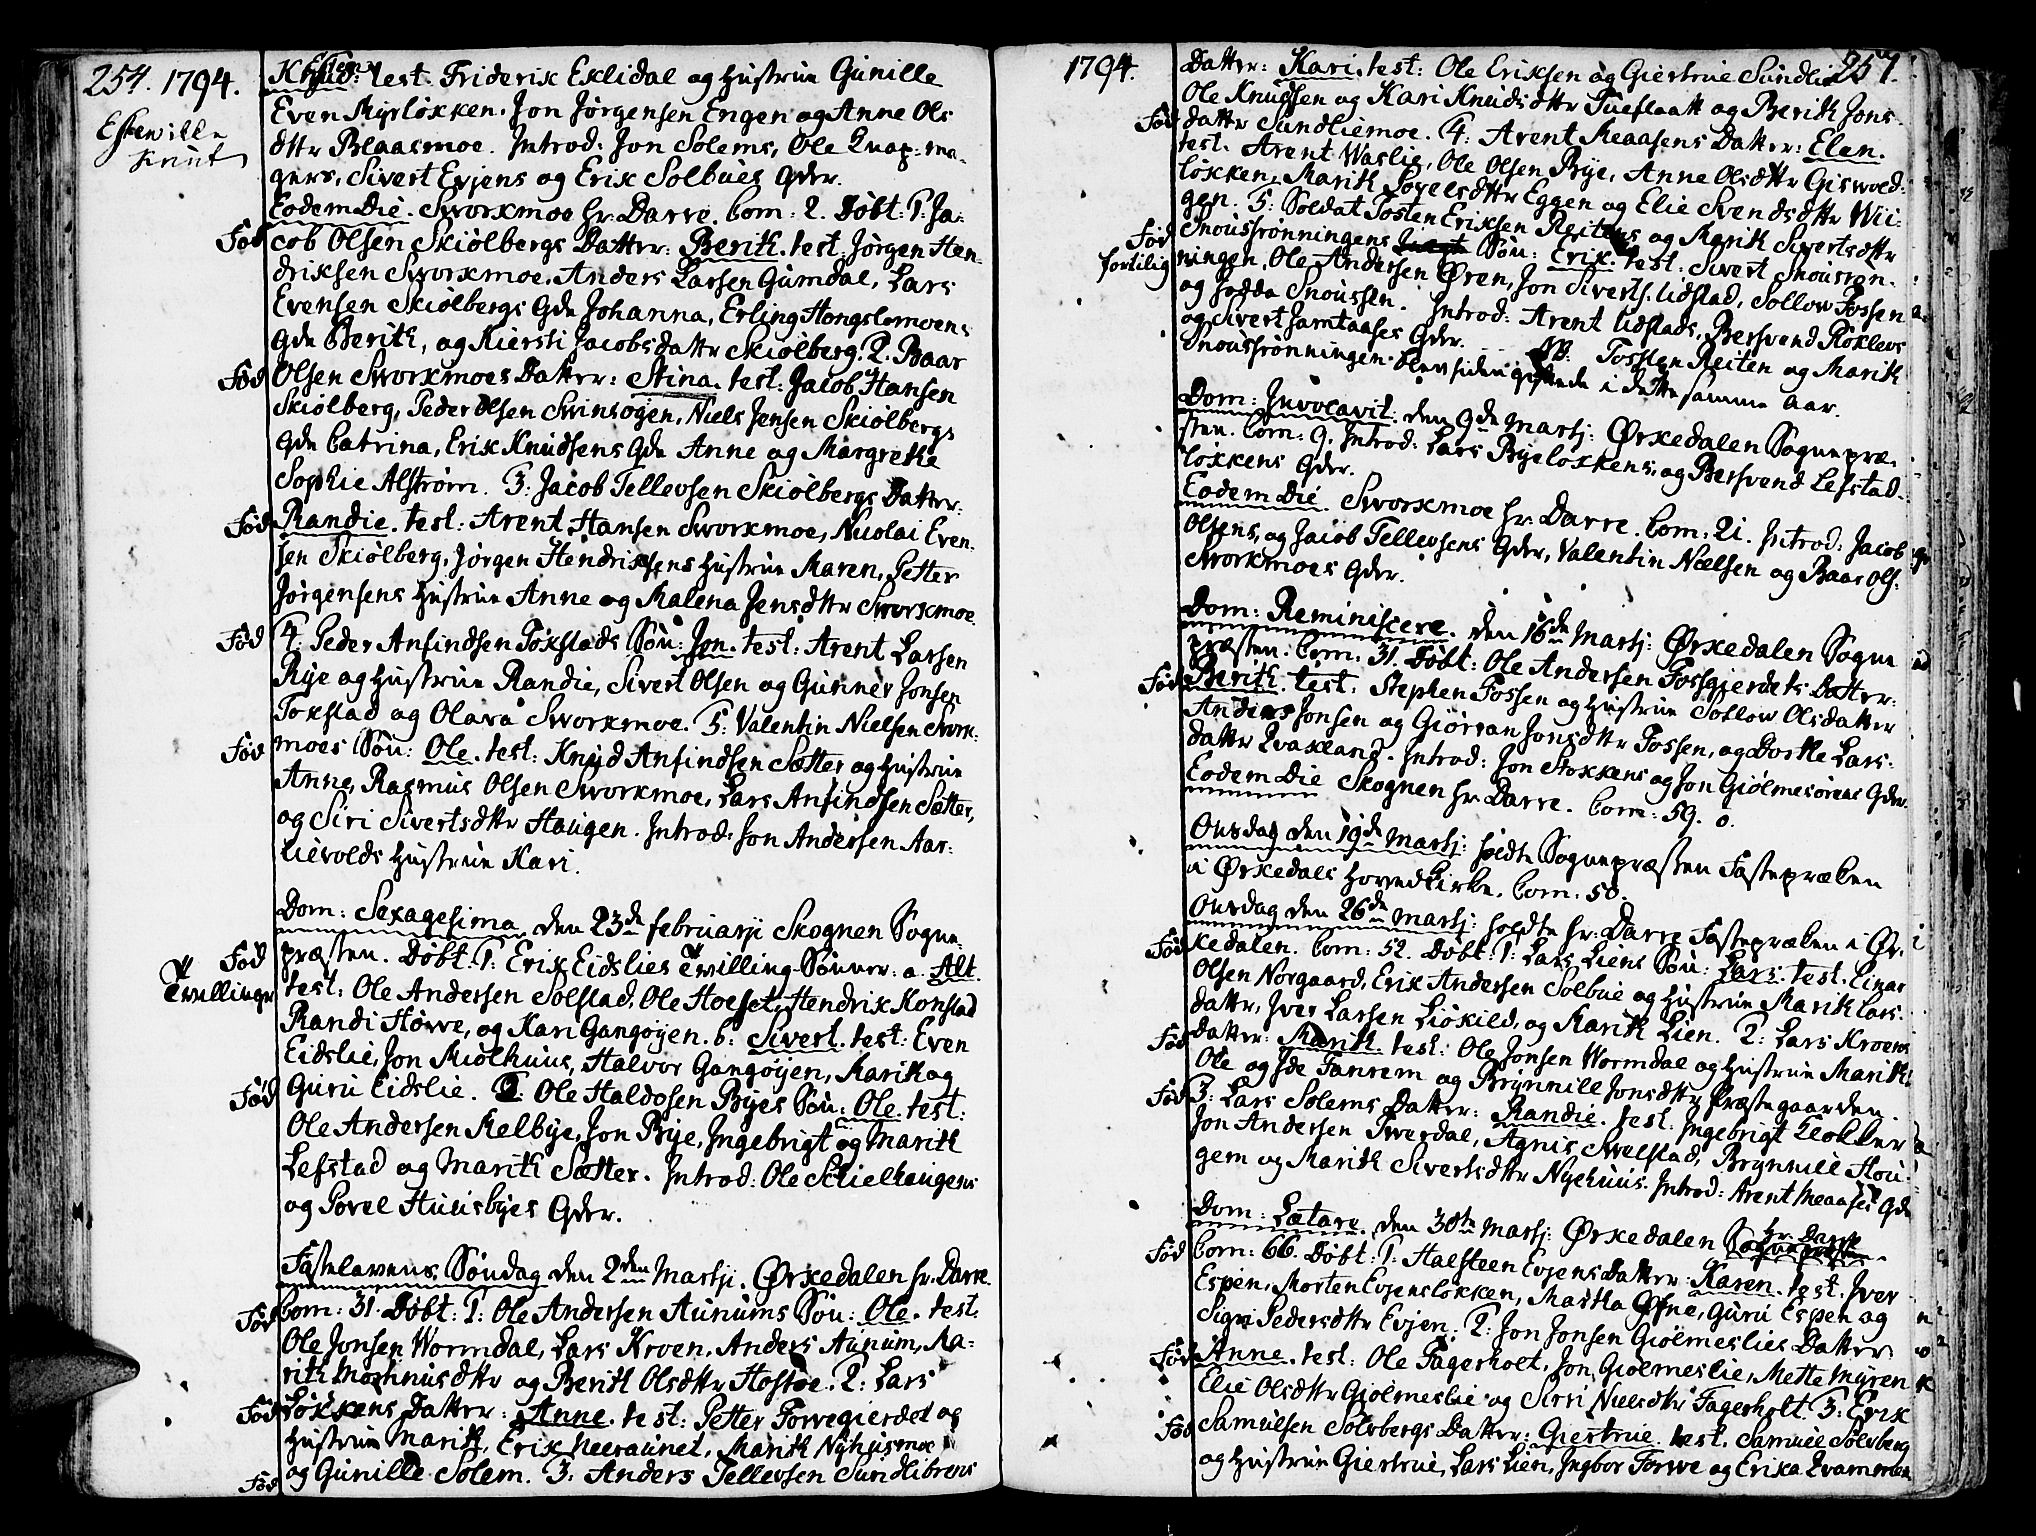 254. 1794.
Knud: test. Friderix Exlidal og Hustrue Gunille
Even Myrløkken. Jon Jørgensen Engen og Anne Ols
dttr Blaasmoe. Introd: Jon Solems, Ole
gers, Sivert Evjens og Erik Solbues Qder.
Eodem Die. Sworkmoe Hr. Darre. Com: 2. Døbt: 1: Ja-
Fød cob Olsen Skiølbergs Datter: Berith. test. Jørgen Hen-
driksen Sworkmoe. Anders Larsen Gumdal, Lars
Evensen Skiølbergs Qde Johanna, Erling Hongslomoens
Qde Berith, og Kiersti Jacobsdattr Skiølberg. 2. Baar
Fød Olsen Sworkmoes Datter: Stina. test: Jacob Hansen
Skiølberg, Peder Olsen Swinsøgen, Niels Jensen Skiølbergs
Qde Catrina, Erik Knudsens Qde Anne og Margrethe
Sophie Alstrøm. 3: Jacob Tellevsen Skiølbergs Datter:
Fød Randie. test: Arent Hansen Sworkmoe, Nicolai Even-
sen Skiølberg, Jørgen Hendriksens Hustrue Maren, Petter
Jørgensens Hustrue Anne og Malena Jensdttr Sworkmoe.
Fød 4: Peder Anfindsen Toxstads Søn: Jon. test: Arent Larsen
Rye og Hustrue Randie, Sivert Olsen og Gunner Jonsen
Toxstad og Olava Sworkmoe. 5: Valentin Nielsen Swork-
Fød moes Søn: Ole. test: Knud Anfindsen Sætter og Hustrue
Anne, Rasmus Olsen Sworkmoe, Lars Anfindsen Sætter,
og Siri Sivertsdttr Haugen. Introd: Jon Andersen Aar-
lievolds Hustrue Kari.
Dom: Sexagesima den 23de februarii Skognen Sogne-
Fød præsten. Døbt: 1: Erik Eidslies Twilling-Sønner: a. Alt.
Twillinger test: Ole Andersen Solstad, Ole Hoeset, Hendrik Konstad
Randi Hørve, og Kari Gangøyen. b: Sivert. test: Even
Eidslie, Jon Miølhuus, Halvor Gangøyen, Marith og
Fød Guru Eidslie. 2: Ole Haldosen Byes Søn: Ole. test:
Ole Andersen Kelbye, Jon Bye, Ingebrigt og Marith
Lefstad og Marith Sætter. Introd: Ole Skielhaugens
og Povel Huusbyes Qder.
Fastelavens Søndag den 2den Martji. Ørkedalen Hr. Darre.
Fød Com: 31. Døbt: 1: Ole Andersen Aunums Søn: Ole. test.
Ole Jonsen Wormdal, Lars Kroen, Anders Aunum, Ma-
rith Mognusdttr og Berith Olsdttr Hostoe. 2: Lars
Fød Løkkens Datter: Anne. test: Petter Forvegierdet og
Hustrue Marith, Erik Neeraunet, Marith Nyhusmoe
Fød og Gunille Solem. 3: Anders Tellevsen Sundlibrens
1794. 257.
Datter: Kari. test: Ole Eriksen og Giertrue Sundlie
Ole Knudsen og Kari Knudsdttr Tueflaatt og Berith Jons-
Fød dattr Sundliemoe. 4: Arent Meaasens Datter: Elen.
test. Arent Waslie, Ole Olsen Bye, Anne Olsdttr Giswold-
løkken, Marith Povelsdttr Eggen og Elie Svendsdttr Wii-
gen. 5: Soldat Tosten Eriksen Reitens og Marith Sivertsdttr
Fød Snousrønningens Søn: Erik. test: Sivert Snousrøn-
fortilig ningen, Ole Andersen Øren, Jon Siverts. Udstad, Sollow Fossen
og Hedda Snoussen. Introd: Arent Udstads, Bersvend Roxlevs
og Sivert Jamtaases Qder. NB. Tosten Reiten og Marith
Snousrønningen blev siden giftede i dette samme Aar.
Dom: Invocavit. den 9de Martj: Ørkedalen Sognepræ-
sten. Com: 9. Introd: Lars Byeløkkens, og Bersvend Lefstad-
løkkens Qder.
Eodem Die. Sworkmoe Hr. Darre. Com: 21. Introd: Jacob
Olsens, og Jacob Tellevsens Qder, Valentin Nielsen og Baar Ols:
Sworkmoes Qder.
Dom: Reminiscere. den 16de Martj: Ørkedalen Sogne
præsten. Com: 31. Døbt: Ole Andersen Fossgierdets Datter:
Fød Berith. test: Stephen Fossen og Hustrue Sollow Olsdatter
Anders Jonsen og Giørran Jonsdttr Fossen, og Dorthe Lars-
dattr Evaxland. Introd: Jon Stokkens og Jon Giølmesørens Qder.
Eodem Die Skognen Hr. Darre. Com: 59. 0.
Onsdag den 19de Martj: holdte Sognepræsten Fasteprækken
i Ørkedals Hovedkirke. Com: 50.
Onsdag den 26de Martj: holdte Hr: Darre Fasteprækken i Ør-
Fød kedalen. Com: 52. Døbt: 1: Lars Liens Søn: Lars. test. Einar
Olsen Norgaard, Erik Andersen Solbue og Hustrue Marith Lars-
dattr, Iver Larsen Liøkild, og Marith Lien. 2: Lars Kroens
Fød Datter: Marith. test: Ole Jonsen Wormdal og Hustrue Marith
Ole og Ide Fanrem og Brynnill Jonsdttr Præstegaarden.
Fød 3: Lars Solems Datter: Randie. test. Ingebrigt Klokker
Jon Andersen Swerdal, Agnis Swelstad, Brynnill Hou-
gem og Marith Sivertsdttr Nyehuus. Introd: Arent Meaases Qde
Dom: Lætare den 30te Martj: Ørkedalen Hr. Darre
Fød Com: 66. Døbt: 1: Halsteen Evjens Datter: Karen. test. Iver
Espen, Morten Evjensløkken, Martha Øfne, Guru Espen og
Sigri Pedersdttr Evjen. 2: Jon Jonsen Giølmeslies Datter:
Fød Anne. test: Ole Fagerholt, Jon Giølmeslie, Mette Myren
Elie Olsdttr Giølmeslie og Sirri Nielsdttr Fagerholt. 3: Erik
Fød Samuelsen Sølvbergs Datter: Giertrue. test. Samuel Sølvberg
og Hustrue Giertrue, Lars Lien, Ingbor Forve og Erika Evammen